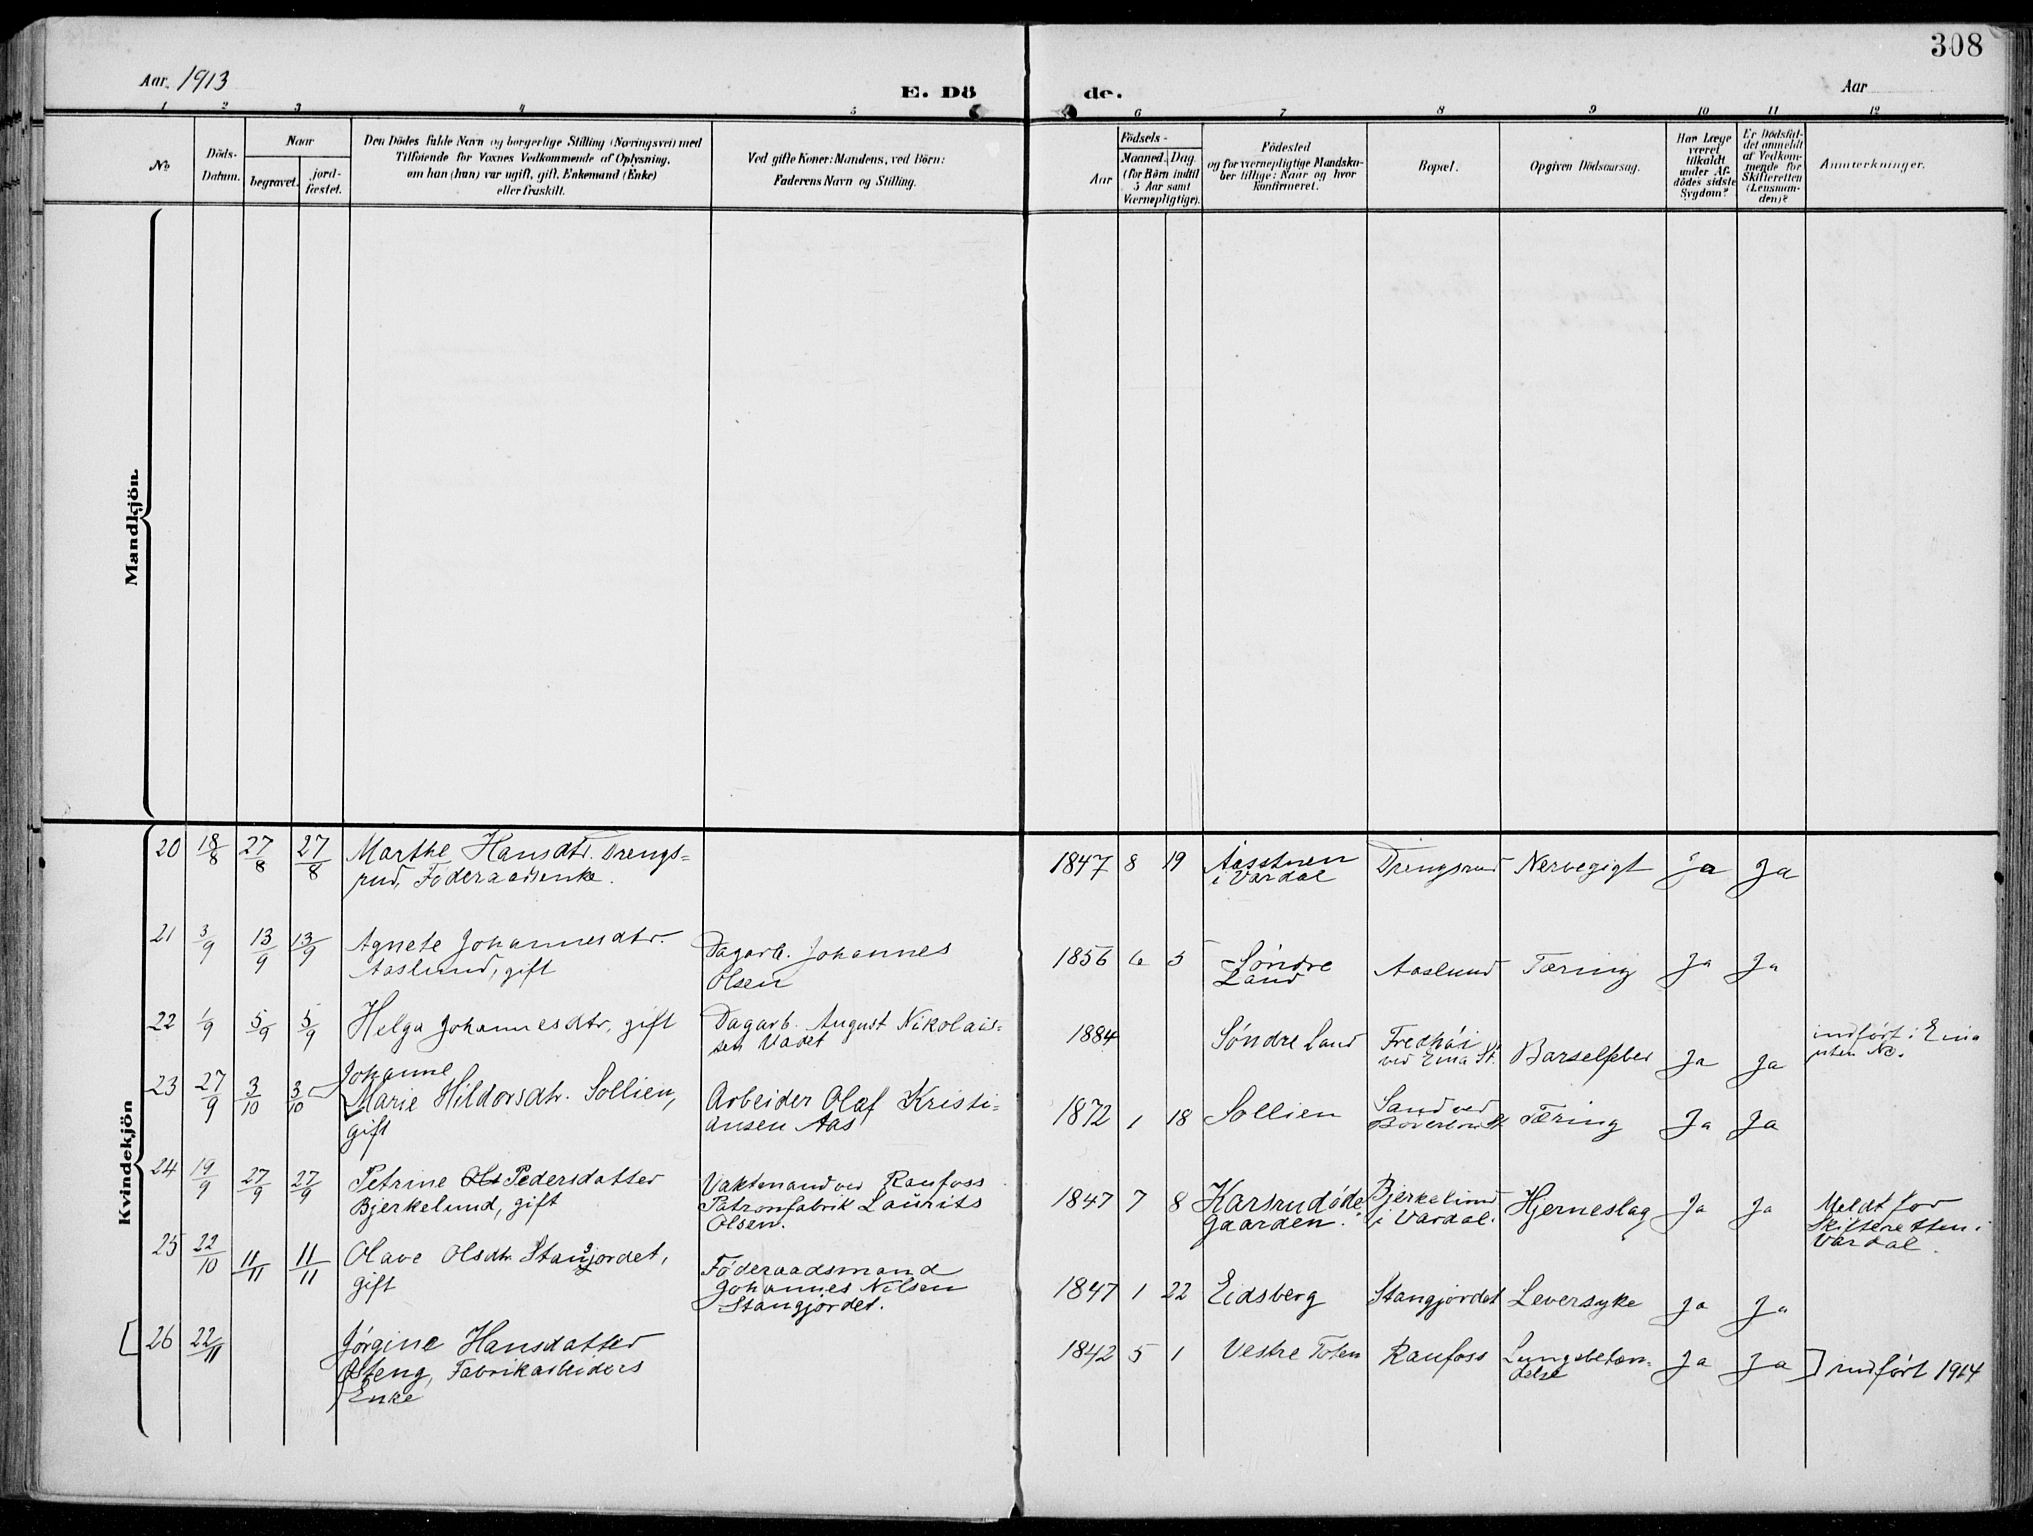 308
Aar 1913
E. Dö
de.
Aar
1 2 3 4 5 6 7 8 9 10 11 12
No
Döds-
Datum.
Naar
begravet.
jord-
fæstet.
Den Dödes fulde Navn og borgerlige Stilling (Næringsvei) med
Tilföiende for Voxnes Vedkommende af Oplysning,
om han (hun) var ugift, gift, Enkemand (Enke)
eller fraskilt.
Ved gifte Koner: Mandens, ved Börn:
Faderens Navn og Stilling.
Födsels-
Aar
Maaned. Dag.
(for Börn indtil
5 Aar samt
Værnepligtige).
Födested
og for værnepligtige Mandska-
ber tillige: Naar og hvor
konfirmeret.
Bopæl.
Opgiven Dödsaarsag.
Har Læge
været
tilkaldt
under Af-
dödes sidste
Sygdom?
Er Dödsfal-
det anmeldt
af Vedkom-
mende for
Skifteretten
(Lensman-
den)?
Anmærkninger.
Mandkjön.
Kvindekjön
20 18/8 27/8 27/8 Marthe Hansdtr. Drengs=
rud, Föderaadsenke.
1847 8 19 Aasstuen
i Vardal
Drengsrud Nervegigt Ja Ja
21 3/9 13/9 13/9 Agnete Johannesdtr.
Aaslund, gift
Dagarb. Johannes
Olsen
1856 6 5 Søndre
Land
Aaslund Tæring Ja Ja
22 1/9 5/9 5/9 Helga Johannesdtr, gift
Dagarb. August Nikolais=
sen Vadet
1884 Søndre Land
Fredhöi
ved Eina St.
Barselfeber Ja Ja
indført i Eina
uten No.
23 27/9 3/10 3/10 Johanne
Marie Hildorsdtr. Sollien,
gift
Arbeider Olaf Kristi=
ansen Aas
1872 1 18 Sollien
Sand ved
Tæring Ja Ja
24 19/9 27/9 27/9 Petrine Ols Pedersdatter
Bjerkelund, gift
Vaktmand ved Raufoss
Patronfabrik Laurits
Olsen.
1847 7 8 Karsrudøde
gaarden.
Bjerkelund
i Vardal.
Hjerneslag Ja Ja
Meldt for
Skifteretten i
Vardal.
25 22/10 11/11 11/11 Olave Olsdtr Stangjordet,
gift
Föderaadsmand
Johannes Nilsen
Stangjordet.
1847 1 22 Eidsberg Stangjordet Leversyke Ja Ja
[ 26 22/11 Jørgine Hansdatter
Østeng, Fabrikarbeiders
Enke
1842 5 1 Vestre Toten Raufoss Lungebetæn-
delse
Ja Ja ] indført 1914